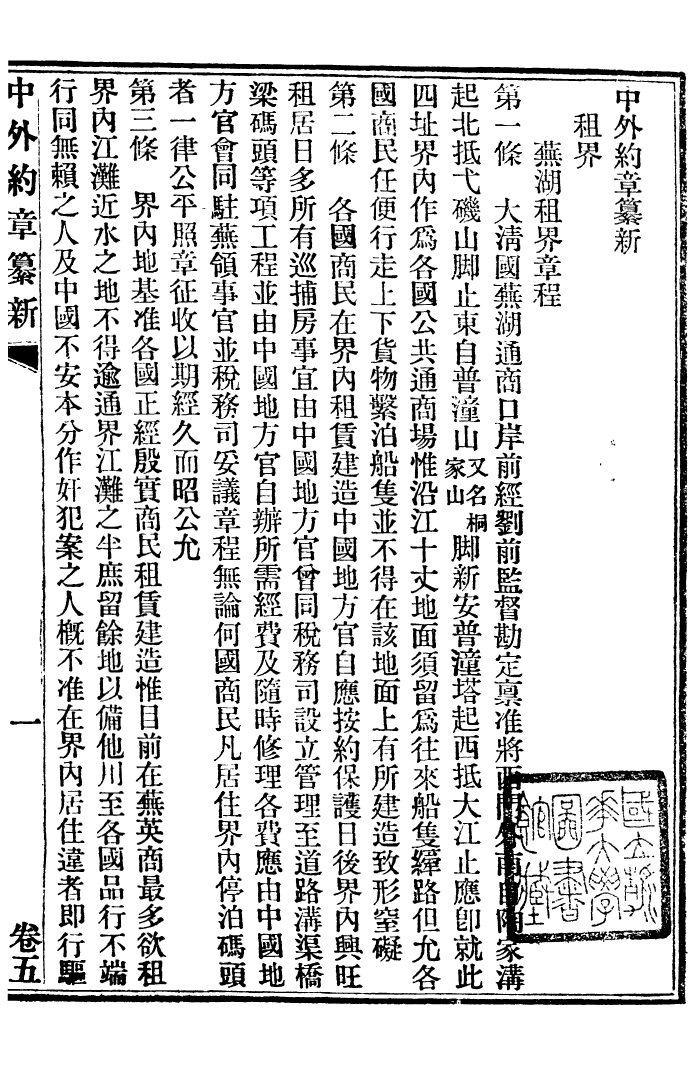 中外約章纂新
租界
蕪湖租界章程
第一條　大清國蕪湖通商口岸前經劉前監督勘定禀准將西門外南自陶家溝
起北抵弋磯山脚止東自普潼山又名桐家山脚新安普潼塔起西抵大江止應卽就此
四址界內作爲各國公共通商場惟沿江十丈地面須留爲往來船隻縴路但允各
國商民任便行走上下貨物繫泊船隻並不得在該地面上有所建造致形窒礙
第二條　各國商民在界內租賃建造中國地方官自應按約保護日後界內興旺
租居日多所有巡捕房事宜由中國地方官會同稅務司設立管理至道路溝渠橋
梁碼頭等項工程並由中國地方官自辦所需經費及隨時修理各費應由中國地
方官會同駐蕪領事官並稅務司妥議章程無論何國商民凡居住界內停泊碼頭
者一律公平照章征收以期經久而昭公允
第三條　界內地基准各國正經殷實商民租賃建造惟目前在蕪英商最多欲租
界內江灘近水之地不得逾通界江灘之半庶留餘地以備他川至各國品行不端
行同無賴之人及中國不安本分作奸犯案之人概不准在界內居住違者即行驅
中外約章纂新
一
卷五
國立清
華大學
圖書
館藏